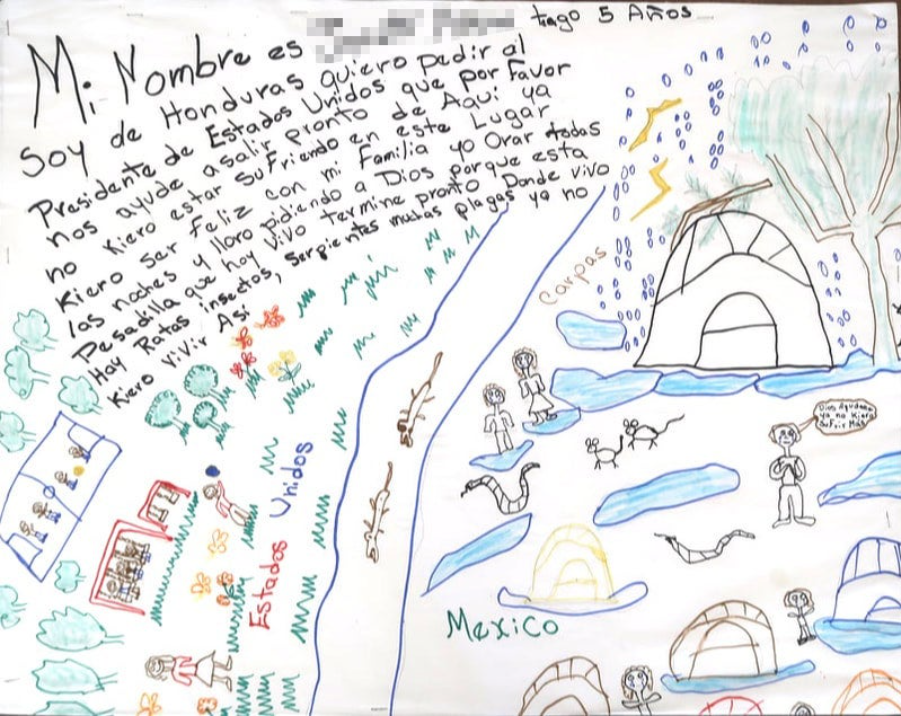 Mi Nombre es tiago 5 Años
Soy de Honduras quiero pedir al
Presidente de Estados Unidos que por Favor
nos ayude asalir pronto de Aqui ya
no Kiero estar sufriendo en este Lugar
Kiero ser Feliz con mi Familia yo Orar todas
las noches y lloro pidiendo a Dios porque esta
Pesadilla que hoy Vivo termine pronto Donde vivo
Hay Ratas insectos, Serpientes muchas plagas ya no
Kiero ViVir Asi
Carpas
Dios Ayudame
ya no Kiero
SuFrir Más
Estados Unidos
Mexico